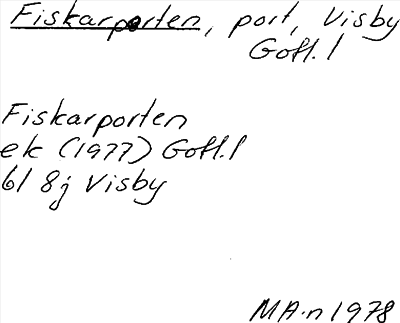 Fiskarporten, port, Visby
Gotl. l
Fiskarporten
ek (1977) Gotl. l
6I 8j Visby
MA-n 1978